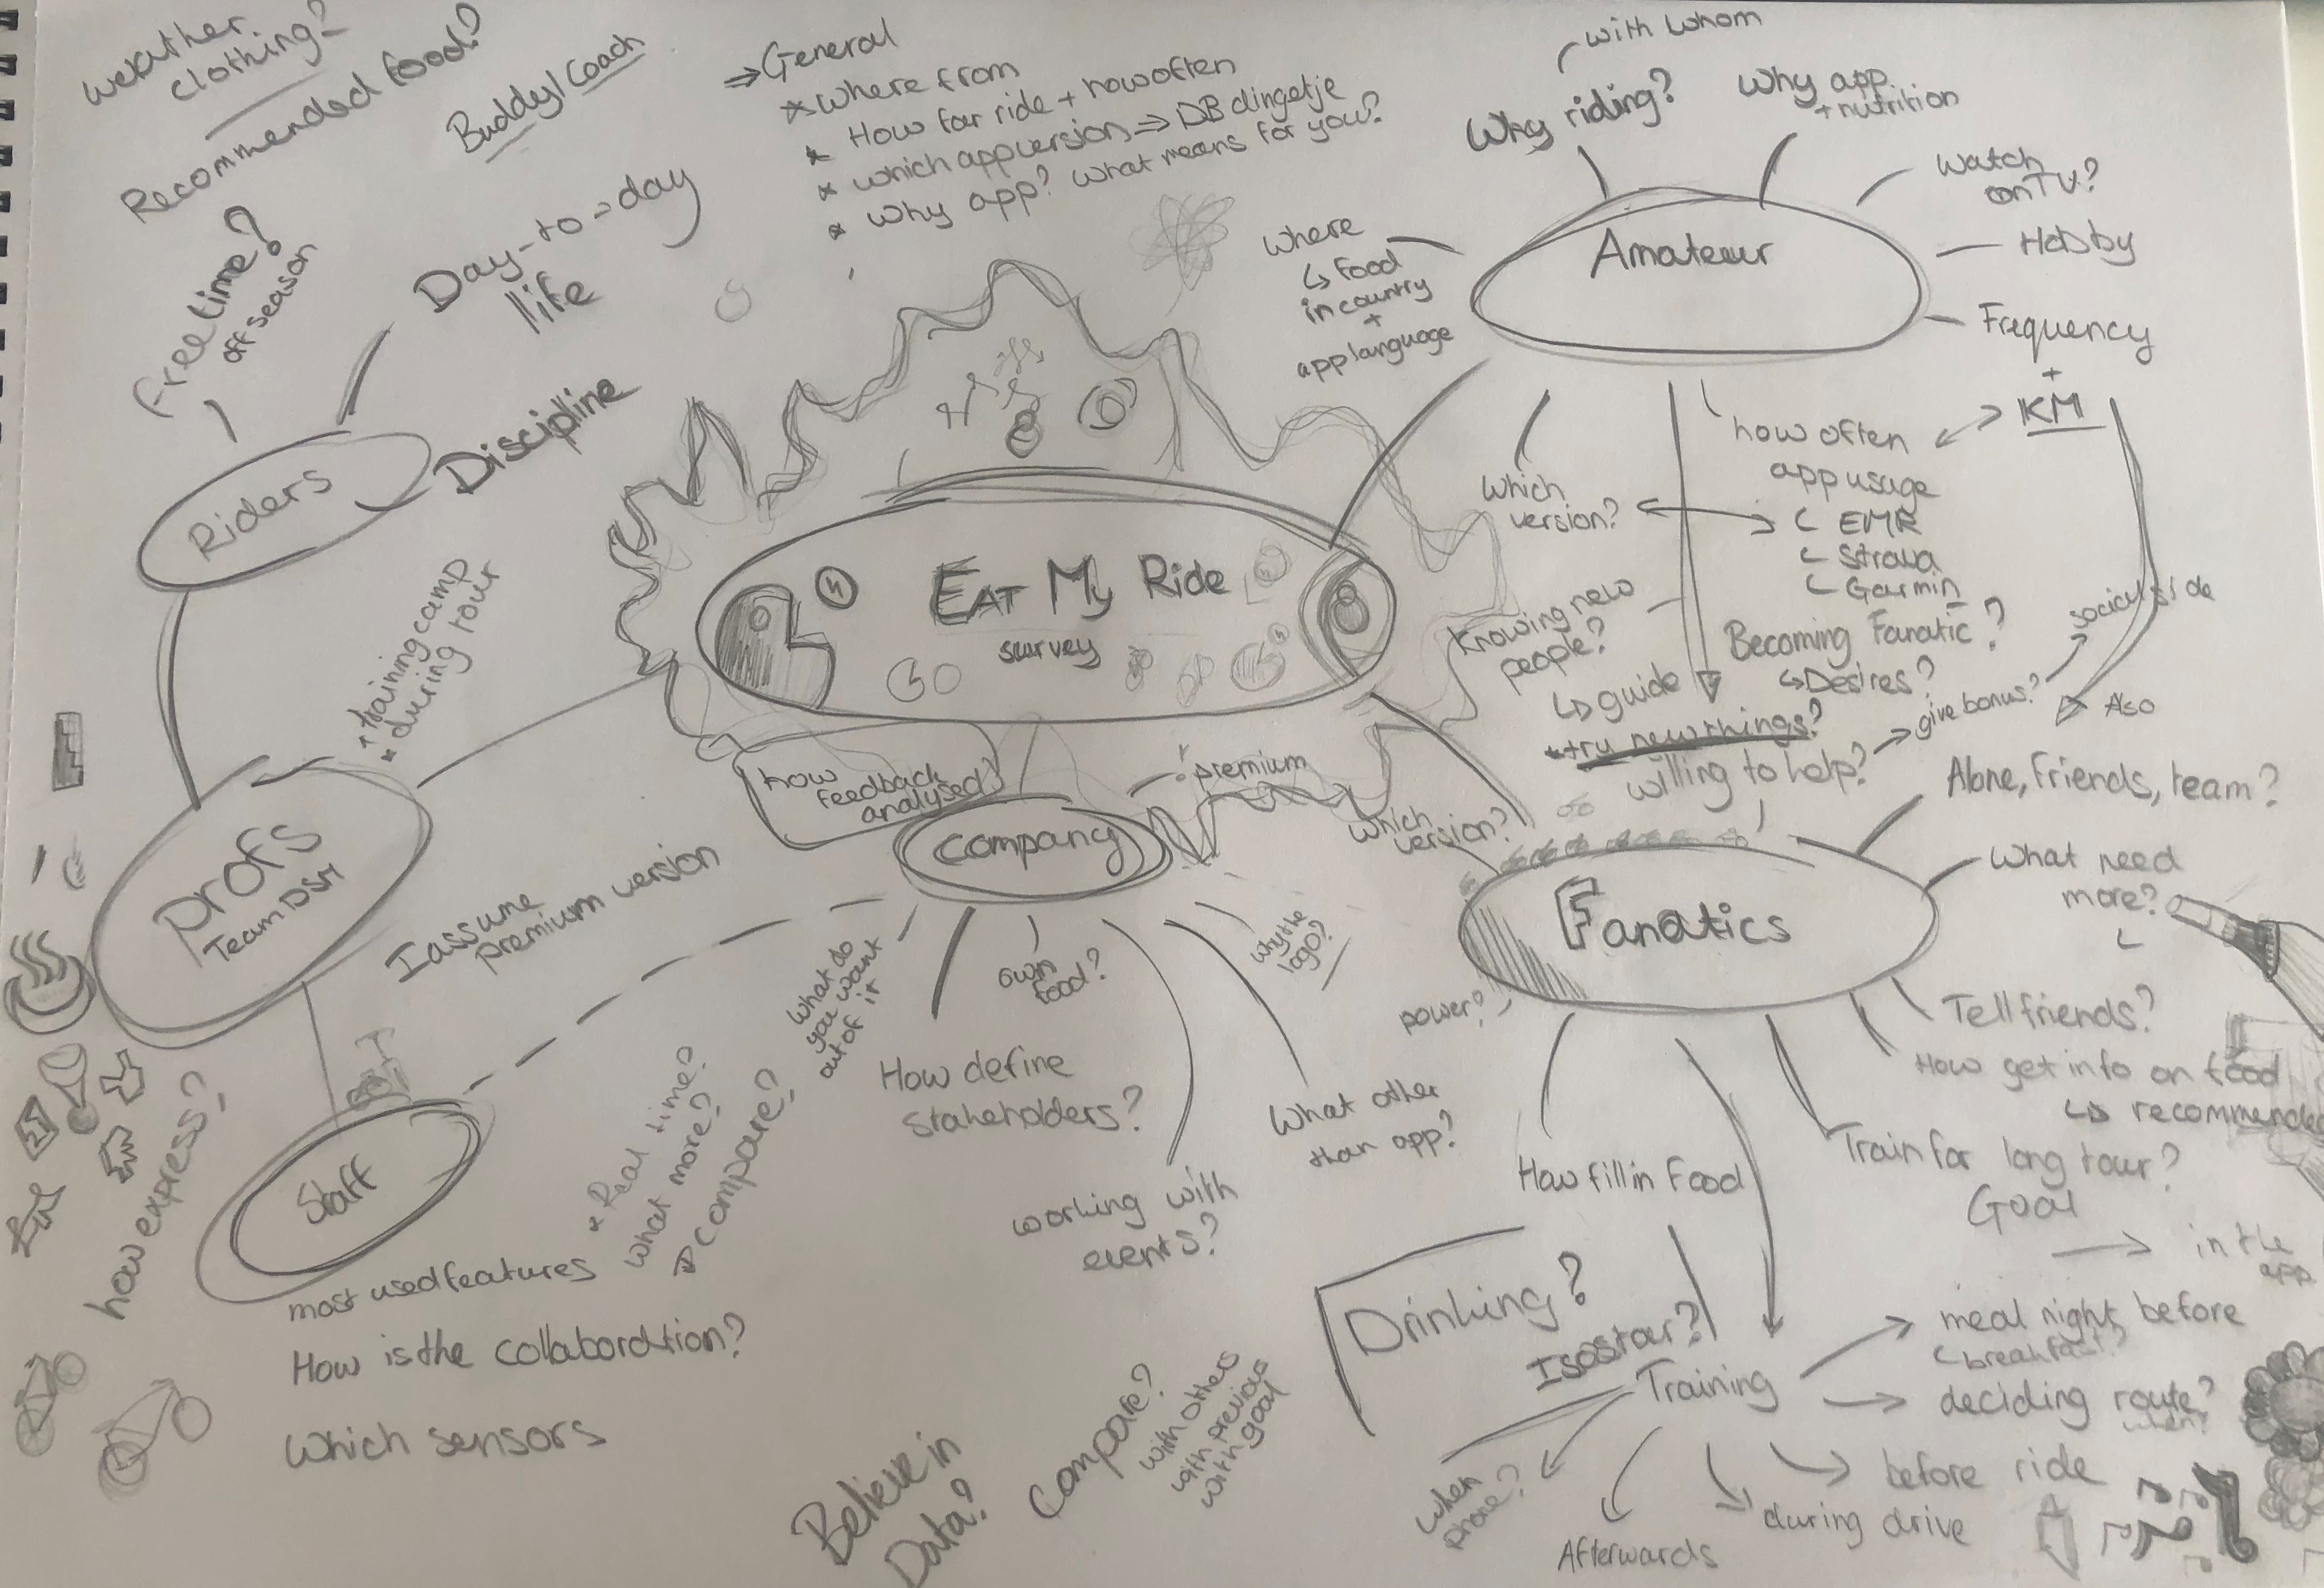 weather
clothing?
Recommended food?
Buddy/Coach
Free time?
off season
Day-to-day
life
Discipline
Riders
⇒ General
* Where from
How far ride + how often
* which app version ⇒ DB dingetje
* Why app? What means for you?
with whom
Why riding?
Why app
+ nutrition
Watch
on TV?
Hobby
Frequency
+
KM
Amateur
Where
↳ food
in country
+
app language
Which
version?
how often
app usage
EMR
Strava
Garmin
Knowing new
people?
↳ guide
* try new things?
Becoming Fanatic?
↳ Desires?
willing to help?
→ give bonus?
→ social side
Also
EAT My Ride
survey
* training camp
* during tour
Profs
Team DSM
I assume
premium version
how
feedback
analysed?
Company
premium
What do
you want
out of it
own
food?
How define
stakeholders?
working with
events?
What other
than app?
why the
logo?
Staff
how express?
most used features
* Real time?
What more?
⇒ compare?
How is the collaboration?
Which sensors
Which
version?
Fanatics
power?
Alone, friends, team?
What need
more?
Tell friends?
How get info on food
↳ recommended
Train for long tour?
Goal
→ in the
app
How fill in food
Drinking?
Isostar?
Training
→ meal night before
breakfast?
→ deciding route?
when?
before ride
during drive
Afterwards
when
phone?
Believe in
Data?
Compare?
with others
with previous
with goal